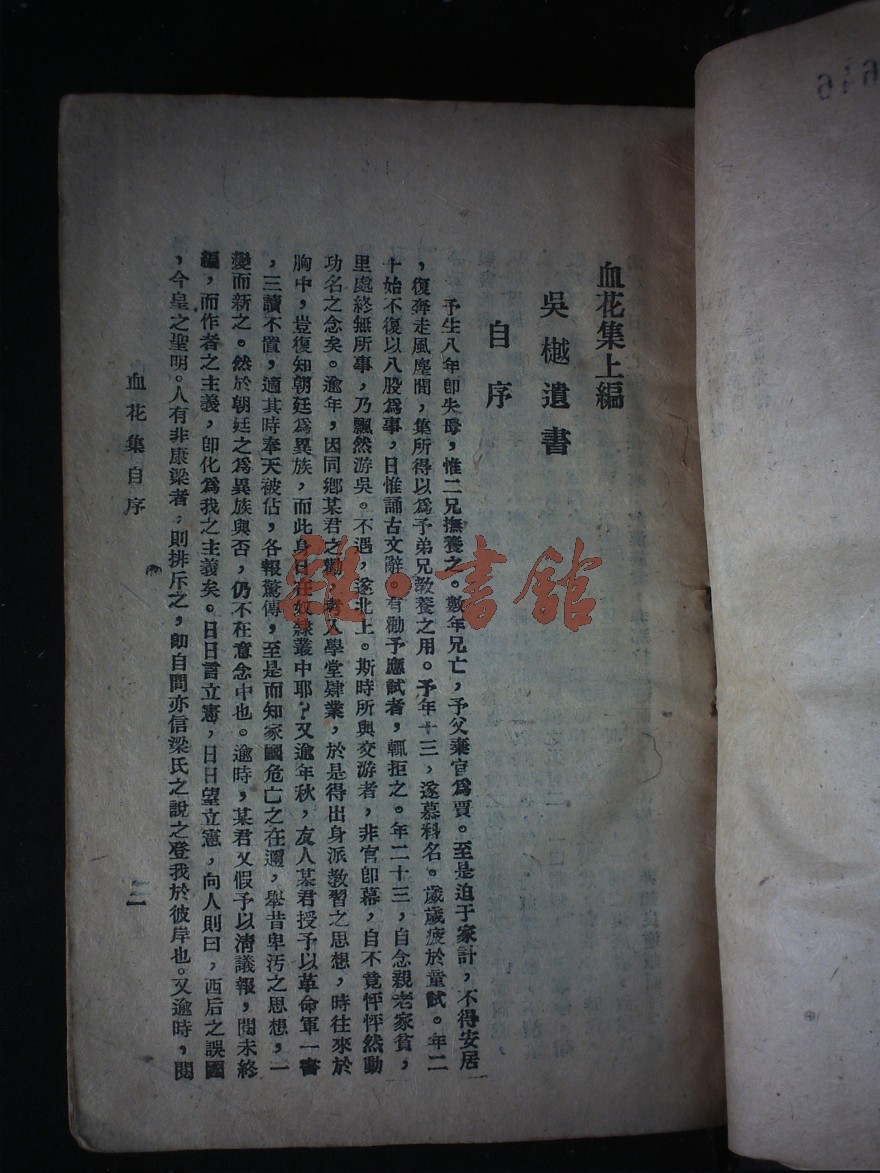 血花集上編
吳樾遺書
自序
予生八年卽失母，惟二兄撫養之。數年兄亡，予父棄官爲賈。至是迫于家計，不得安居
，復奔走風塵間，集所得以爲予弟兄教養之用。予年十三，遂慕科名。歲歲疲於童試。年二
十始不復以八股爲事，日惟誦古文辭。有勸予應試者，輒拒之。年二十三，自念親老家貧，
里處終無所事，乃飄然游吳。不遇，遂北上。斯時所與交游者，非官卽幕，自不竟怦怦然動
功名之念矣。逾年，因同鄉某君之勸，考入學堂肄業，於是得出身派教習之思想，時往來於
胸中，豈復知朝廷爲異族，而此身日在奴隸叢中耶？又逾年秋，友人某君授予以革命軍一書
，三讀不置，適其時奉天被佔，各報驚傳，至是而知家國危亡之在邇，舉昔卑汚之思想，一
變而新之。然於朝廷之爲異族與否，仍不在意念中也。逾時，某君又假予以清議報，閱未終
編，而作者之主義，卽化爲我之主義矣。日日言立憲，日日望立憲，向人則曰，西后之誤國
，今皇之聖明。人有非康梁者，則排斥之，卽自問亦信梁氏之說之登我於彼岸也。又逾時，閱
血花集自序
646
書館